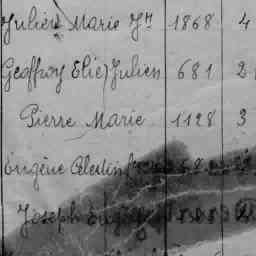 Julien Marie Jn 1868 4
Geoffroy Elie Julien 681 2
Pierre Marie 1128 3
Eugène Célestin
Joseph Eugène